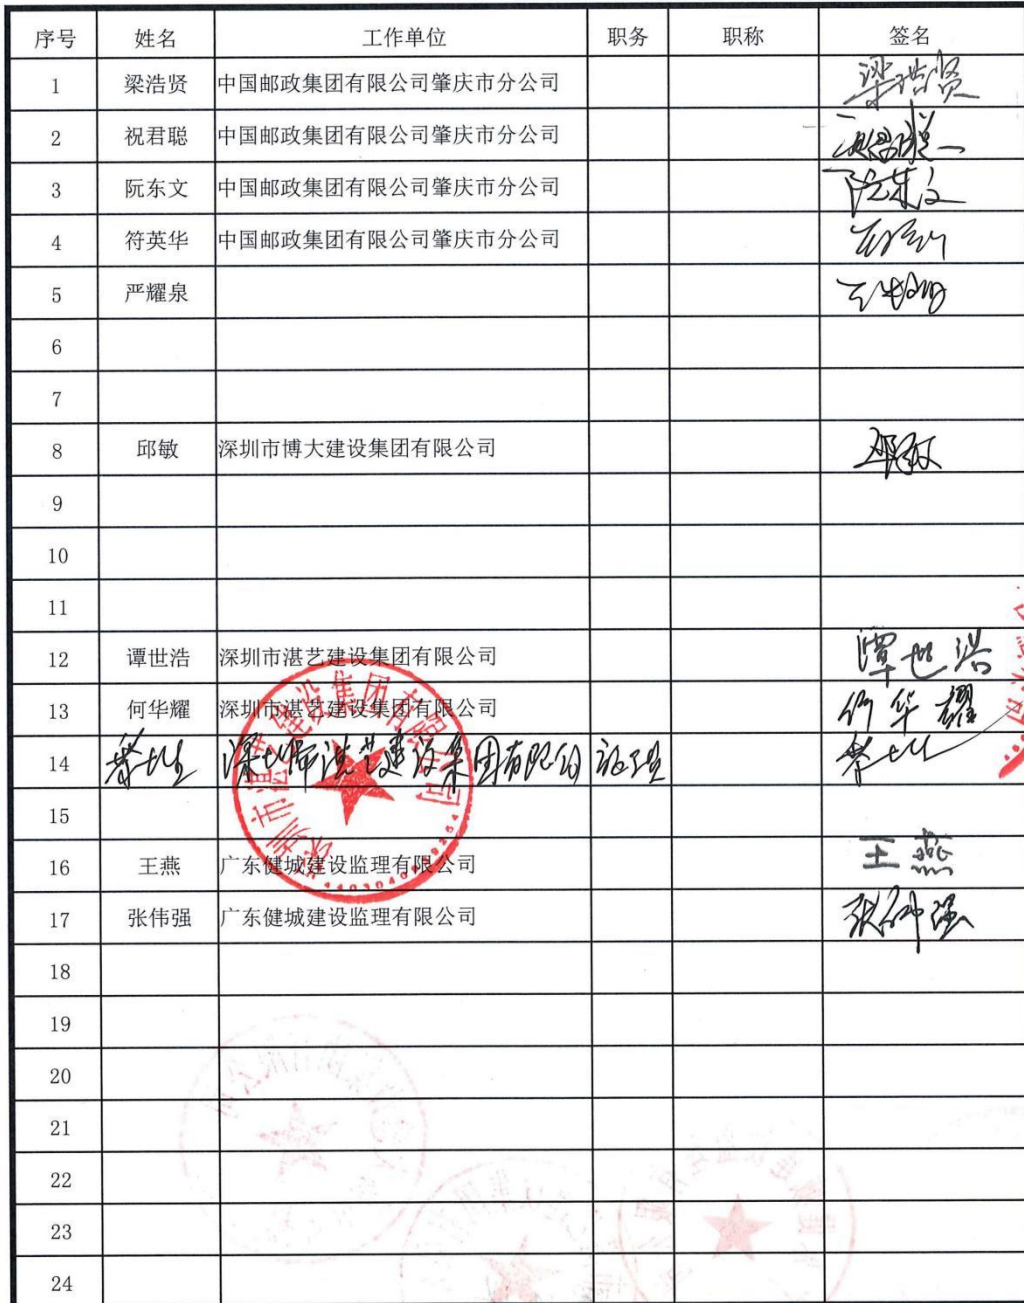 序号 姓名 工作单位 职务 职称 签名
1 梁浩贤 中国邮政集团有限公司肇庆市分公司 梁浩贤
2 祝君聪 中国邮政集团有限公司肇庆市分公司
3 阮东文 中国邮政集团有限公司肇庆市分公司 阮东文
4 符英华 中国邮政集团有限公司肇庆市分公司
5 严耀泉
6
7
8 邱敏 深圳市博大建设集团有限公司 邱敏
9
10
11
12 谭世浩 深圳市湛艺建设集团有限公司 谭世浩
13 何华耀 深圳市湛艺建设集团有限公司 何华耀
14 深圳市湛艺建设集团有限公司
15
16 王燕 广东健城建设监理有限公司 王燕
17 张伟强 广东健城建设监理有限公司 张伟强
18
19
20
21
22
23
24
深圳市湛艺建设集团有限公司